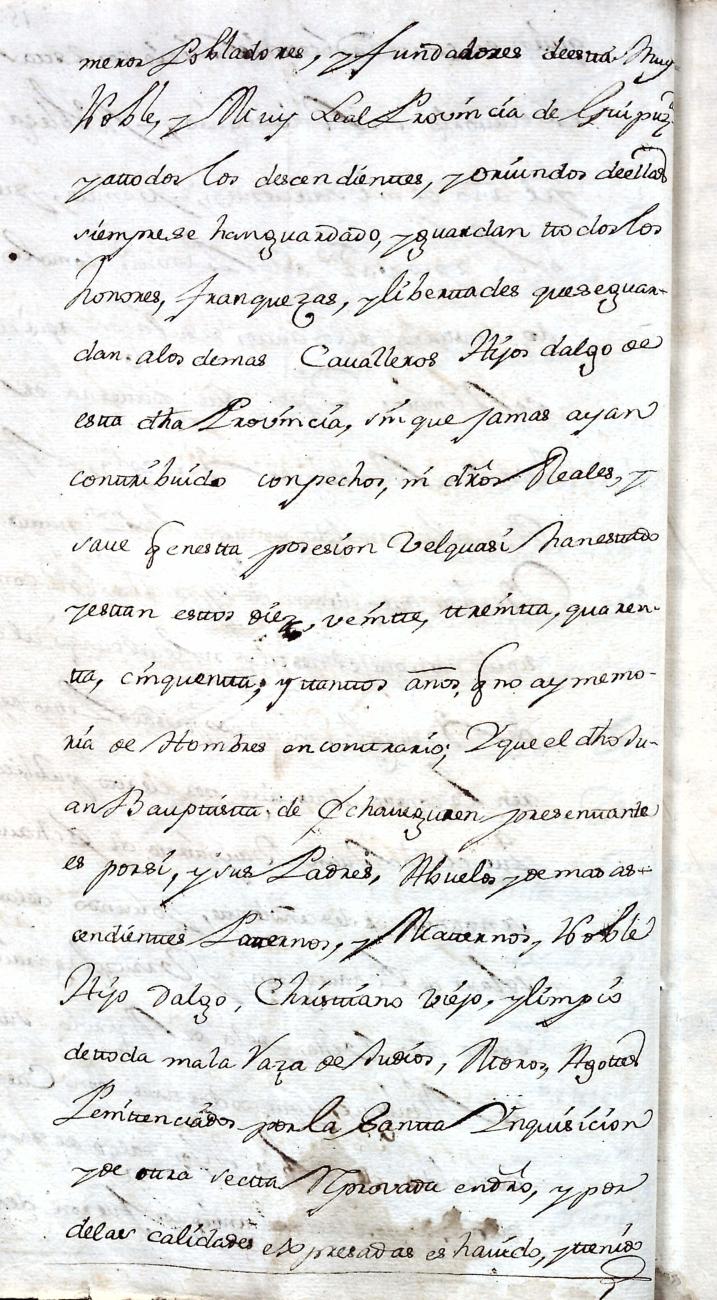 meros Pobladores, y fundadores deesta Muy
Noble, y Muy Leal Provincia de Guipuz.ª
yattodos los descendienttes, y oriundos deellas
siempre se hanguardado, yguardan ttodos los
honores, franquezas, ylibertades queseguar-
dan. alos demas Cavalleros Hijos dalgo de
esta dha Provincia, sin que jamas ayan
contribuido conpechos, ni dr̃os Reales, y
save q̃ enestta posesion Velquasi hanestado
yestan estos diez, veintte, ttreintta, quaren-
tta, cinquentta, y ttanttos años, q̃ no ay memo-
ria de Hombres en contrario; Yque el dho Ju-
an Bauptista de Echaveguren presentante
es porsi, y sus Padres, Abuelos y demas as-
cendientes Paternos, y Maternos, Noble
Hijo dalgo, Christiano viejo, ylimpio
dettoda mala Raza de Judios, Moros, Agottes
Penitenciados por la Santta Ynquisicion
y de otra sectta Reprovada endr̃o, y por
delas calidades expresadas es havido, ytenido